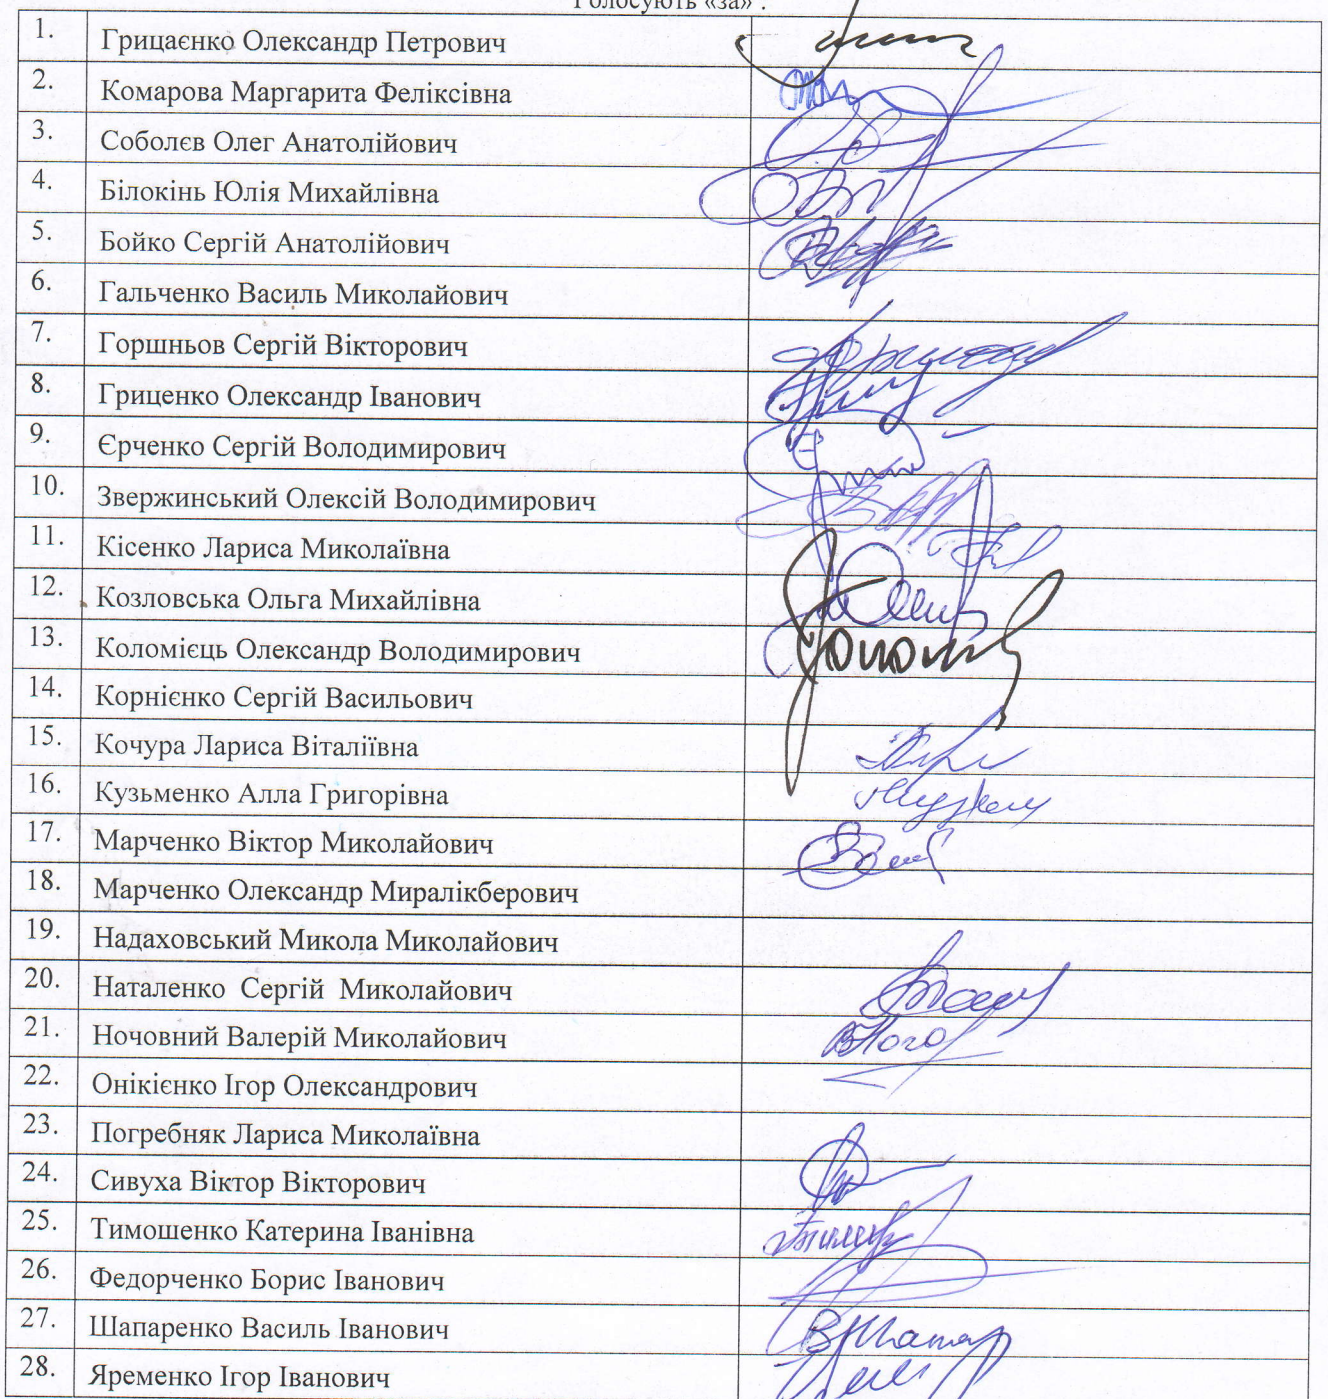 Голосують «за» :
1. Грицаєнко Олександр Петрович
2. Комарова Маргарита Феліксівна
3. Соболєв Олег Анатолійович
4. Білокінь Юлія Михайлівна
5. Бойко Сергій Анатолійович
6. Гальченко Василь Миколайович
7. Горшньов Сергій Вікторович
8. Гриценко Олександр Іванович
9. Єрченко Сергій Володимирович
10. Звержинський Олексій Володимирович
11. Кісенко Лариса Миколаївна
12. Козловська Ольга Михайлівна
13. Коломієць Олександр Володимирович
14. Корнієнко Сергій Васильович
15. Кочура Лариса Віталіївна
16. Кузьменко Алла Григорівна
17. Марченко Віктор Миколайович
18. Марченко Олександр Миралікберович
19. Надаховський Микола Миколайович
20. Наталенко Сергій Миколайович
21. Ночовний Валерій Миколайович
22. Онікієнко Ігор Олександрович
23. Погребняк Лариса Миколаївна
24. Сивуха Віктор Вікторович
25. Тимошенко Катерина Іванівна
26. Федорченко Борис Іванович
27. Шапаренко Василь Іванович
28. Яременко Ігор Іванович